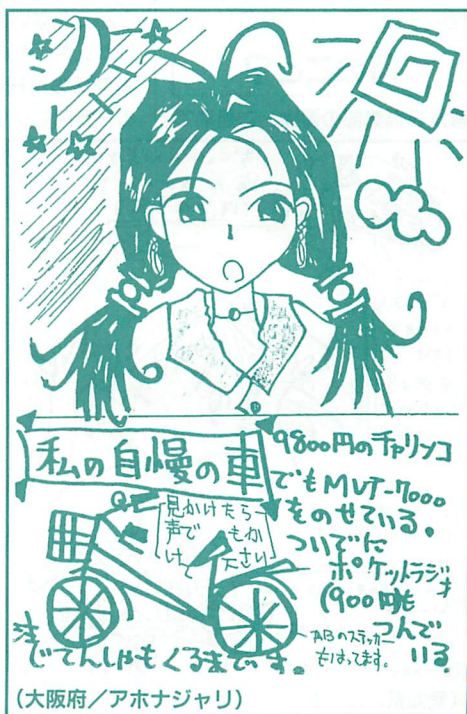 私の自慢の車
9800円のチャリンコ
でもMVT-7000
をのせている。
ついでに
ポケットラジオ
(900円)も
つんで
いる
見かけたら
声でもか
け下さい
ABのステッカー
もはってます。
注 じてんしゃもくるまです。
(大阪府/アホナジャリ)